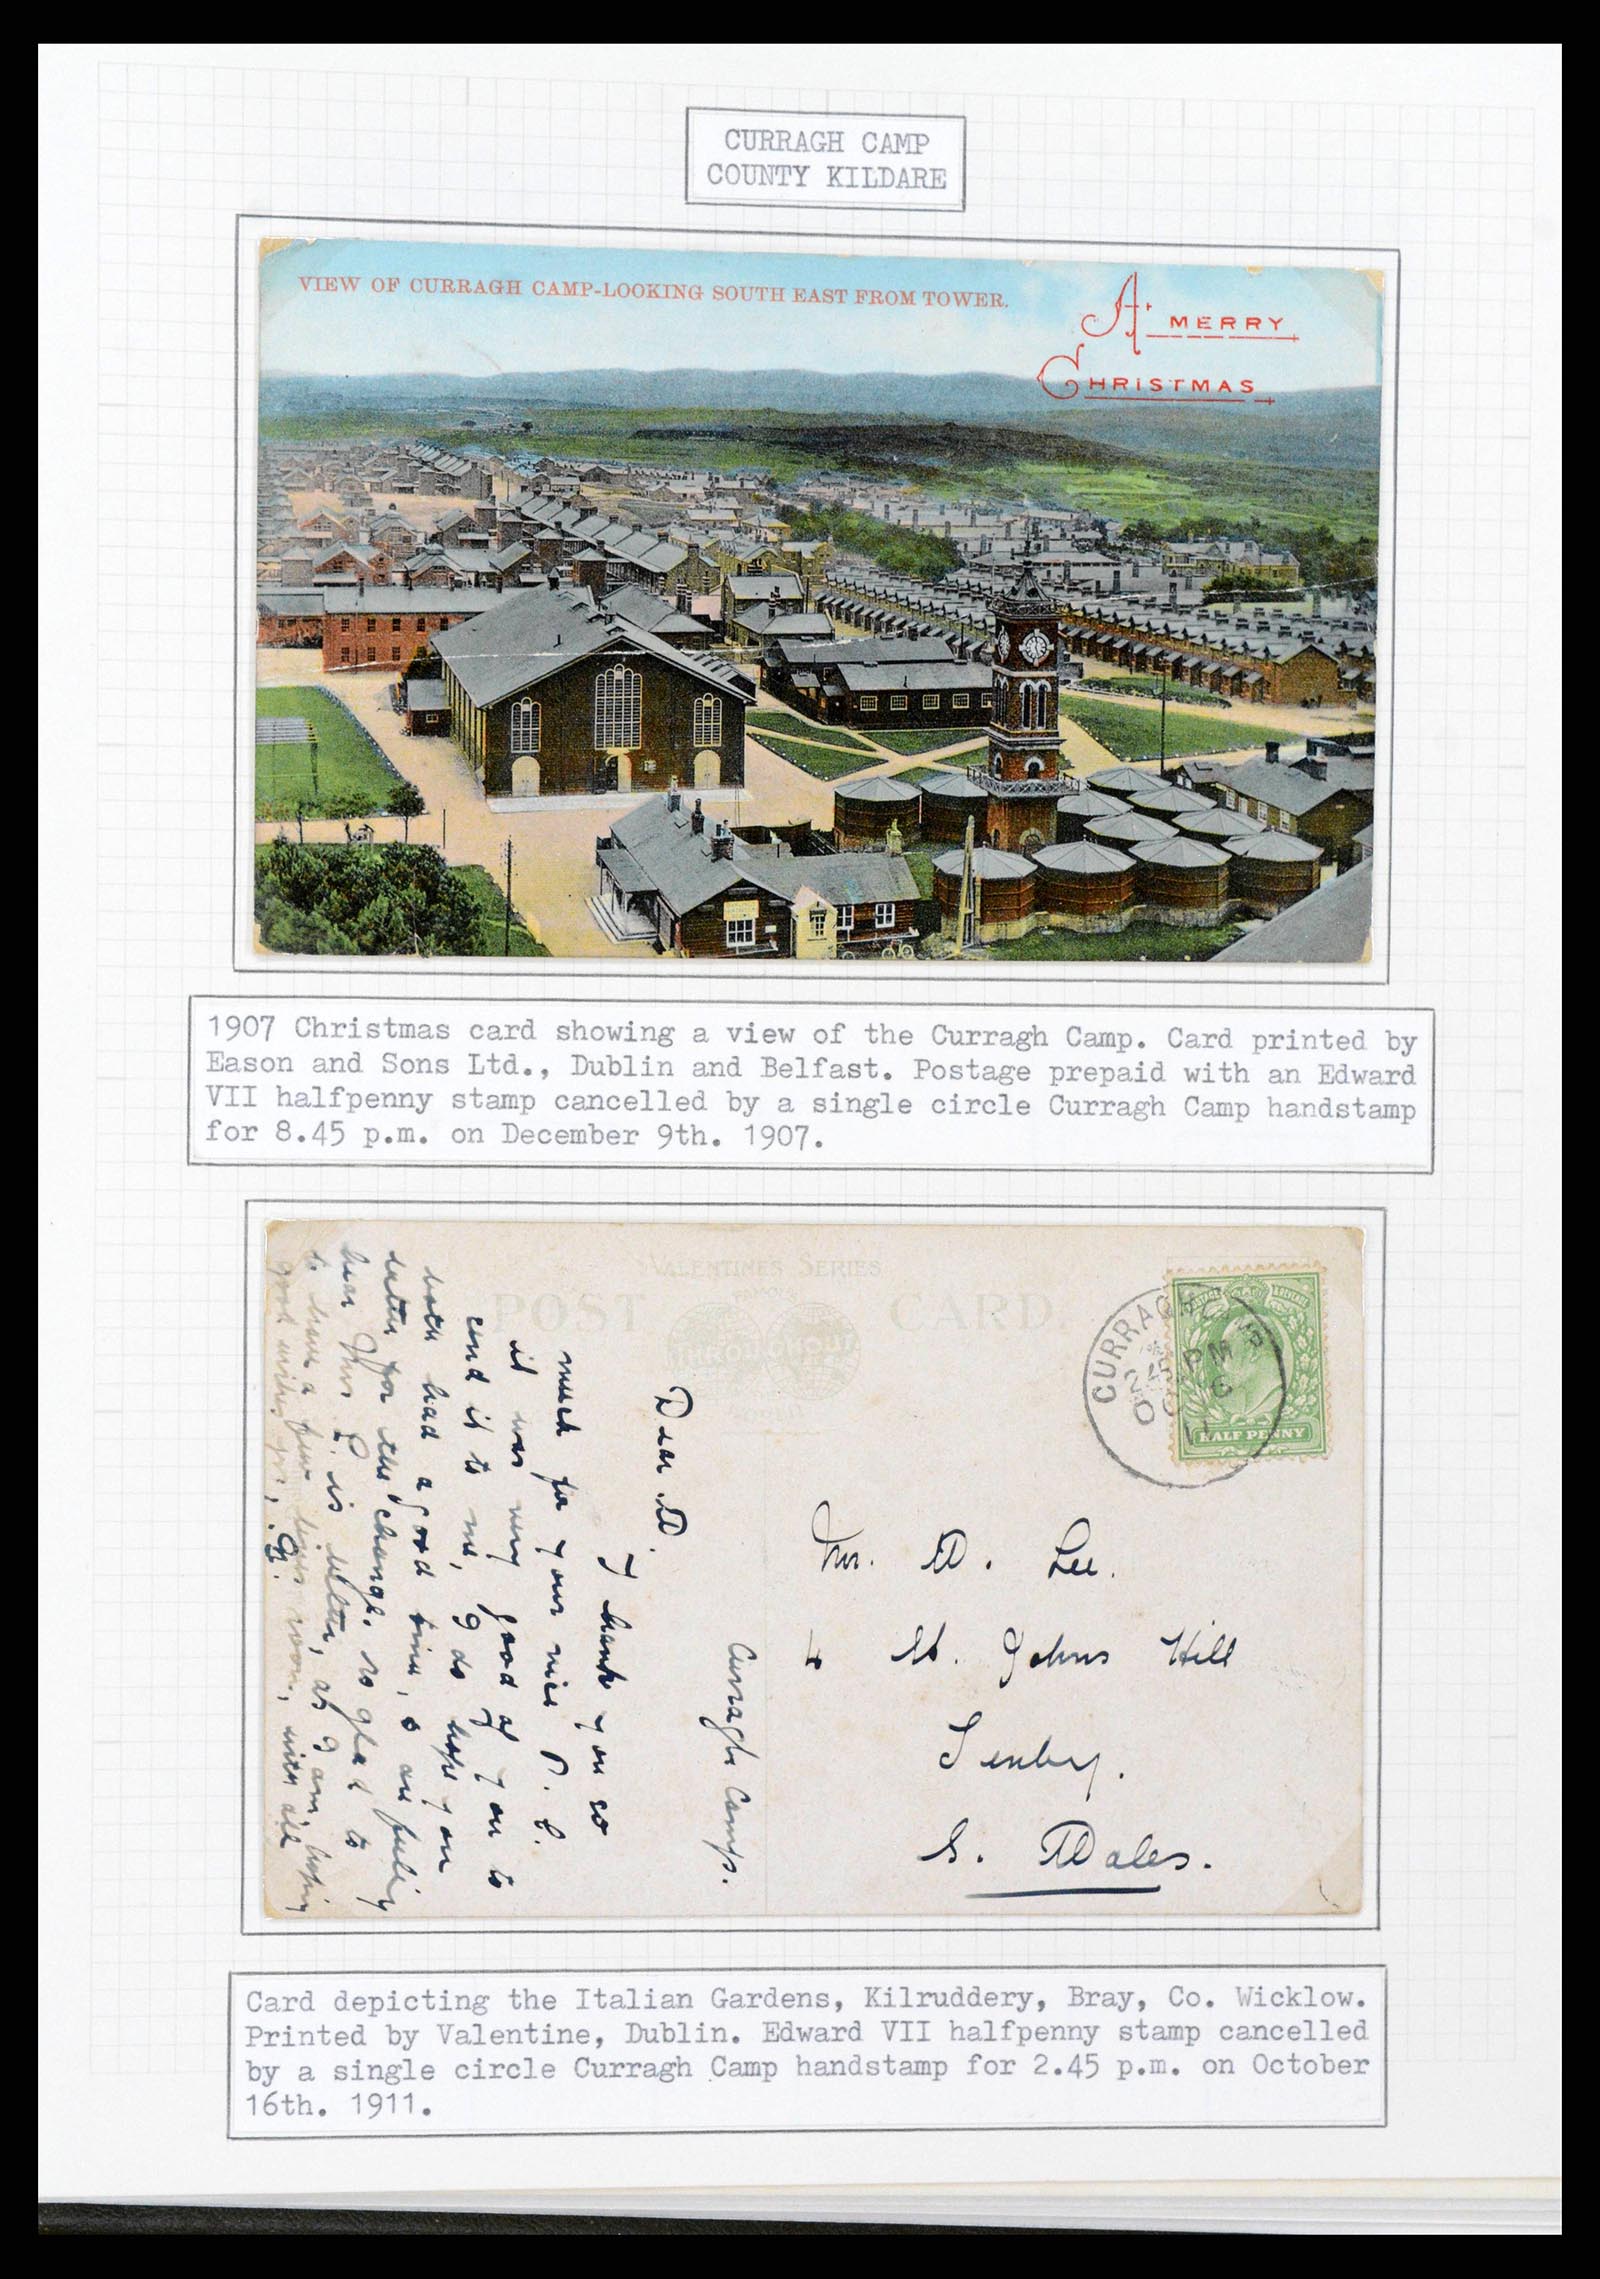 CURRAGH CAMP
COUNTY KILDARE
VIEW OF CURRAGH CAMP-LOOKING SOUTH EAST FROM TOWER.
A MERRY
CHRISTMAS
1907 Christmas card showing a view of the Curragh Camp. Card printed by
Eason and Sons Ltd., Dublin and Belfast. Postage prepaid with an Edward
VII halfpenny stamp cancelled by a single circle Curragh Camp handstamp
for 8.45 p.m. on December 9th. 1907.
VALENTINES SERIES
POST CARD.
FAMOUS
THROUGHOUT
WORLD
POSTAGE REVENUE
HALF PENNY
CURRAGH CAMP
2 45 PM
OC 16
11
Curragh Camp.
Dear W.
I thank you so
much for your nice P. C.
it was very good of you to
send it to me, I do hope you
both had a good time, & are feeling
better for the change. so glad to
hear Mrs L. is better, as I am, hoping
to have a few lines soon, with all
good wishes yrs, G.
Mr. W. Lee.
4 St. Johns Hill
Tenby.
S. Wales.
Card depicting the Italian Gardens, Kilruddery, Bray, Co. Wicklow.
Printed by Valentine, Dublin. Edward VII halfpenny stamp cancelled
by a single circle Curragh Camp handstamp for 2.45 p.m. on October
16th. 1911.